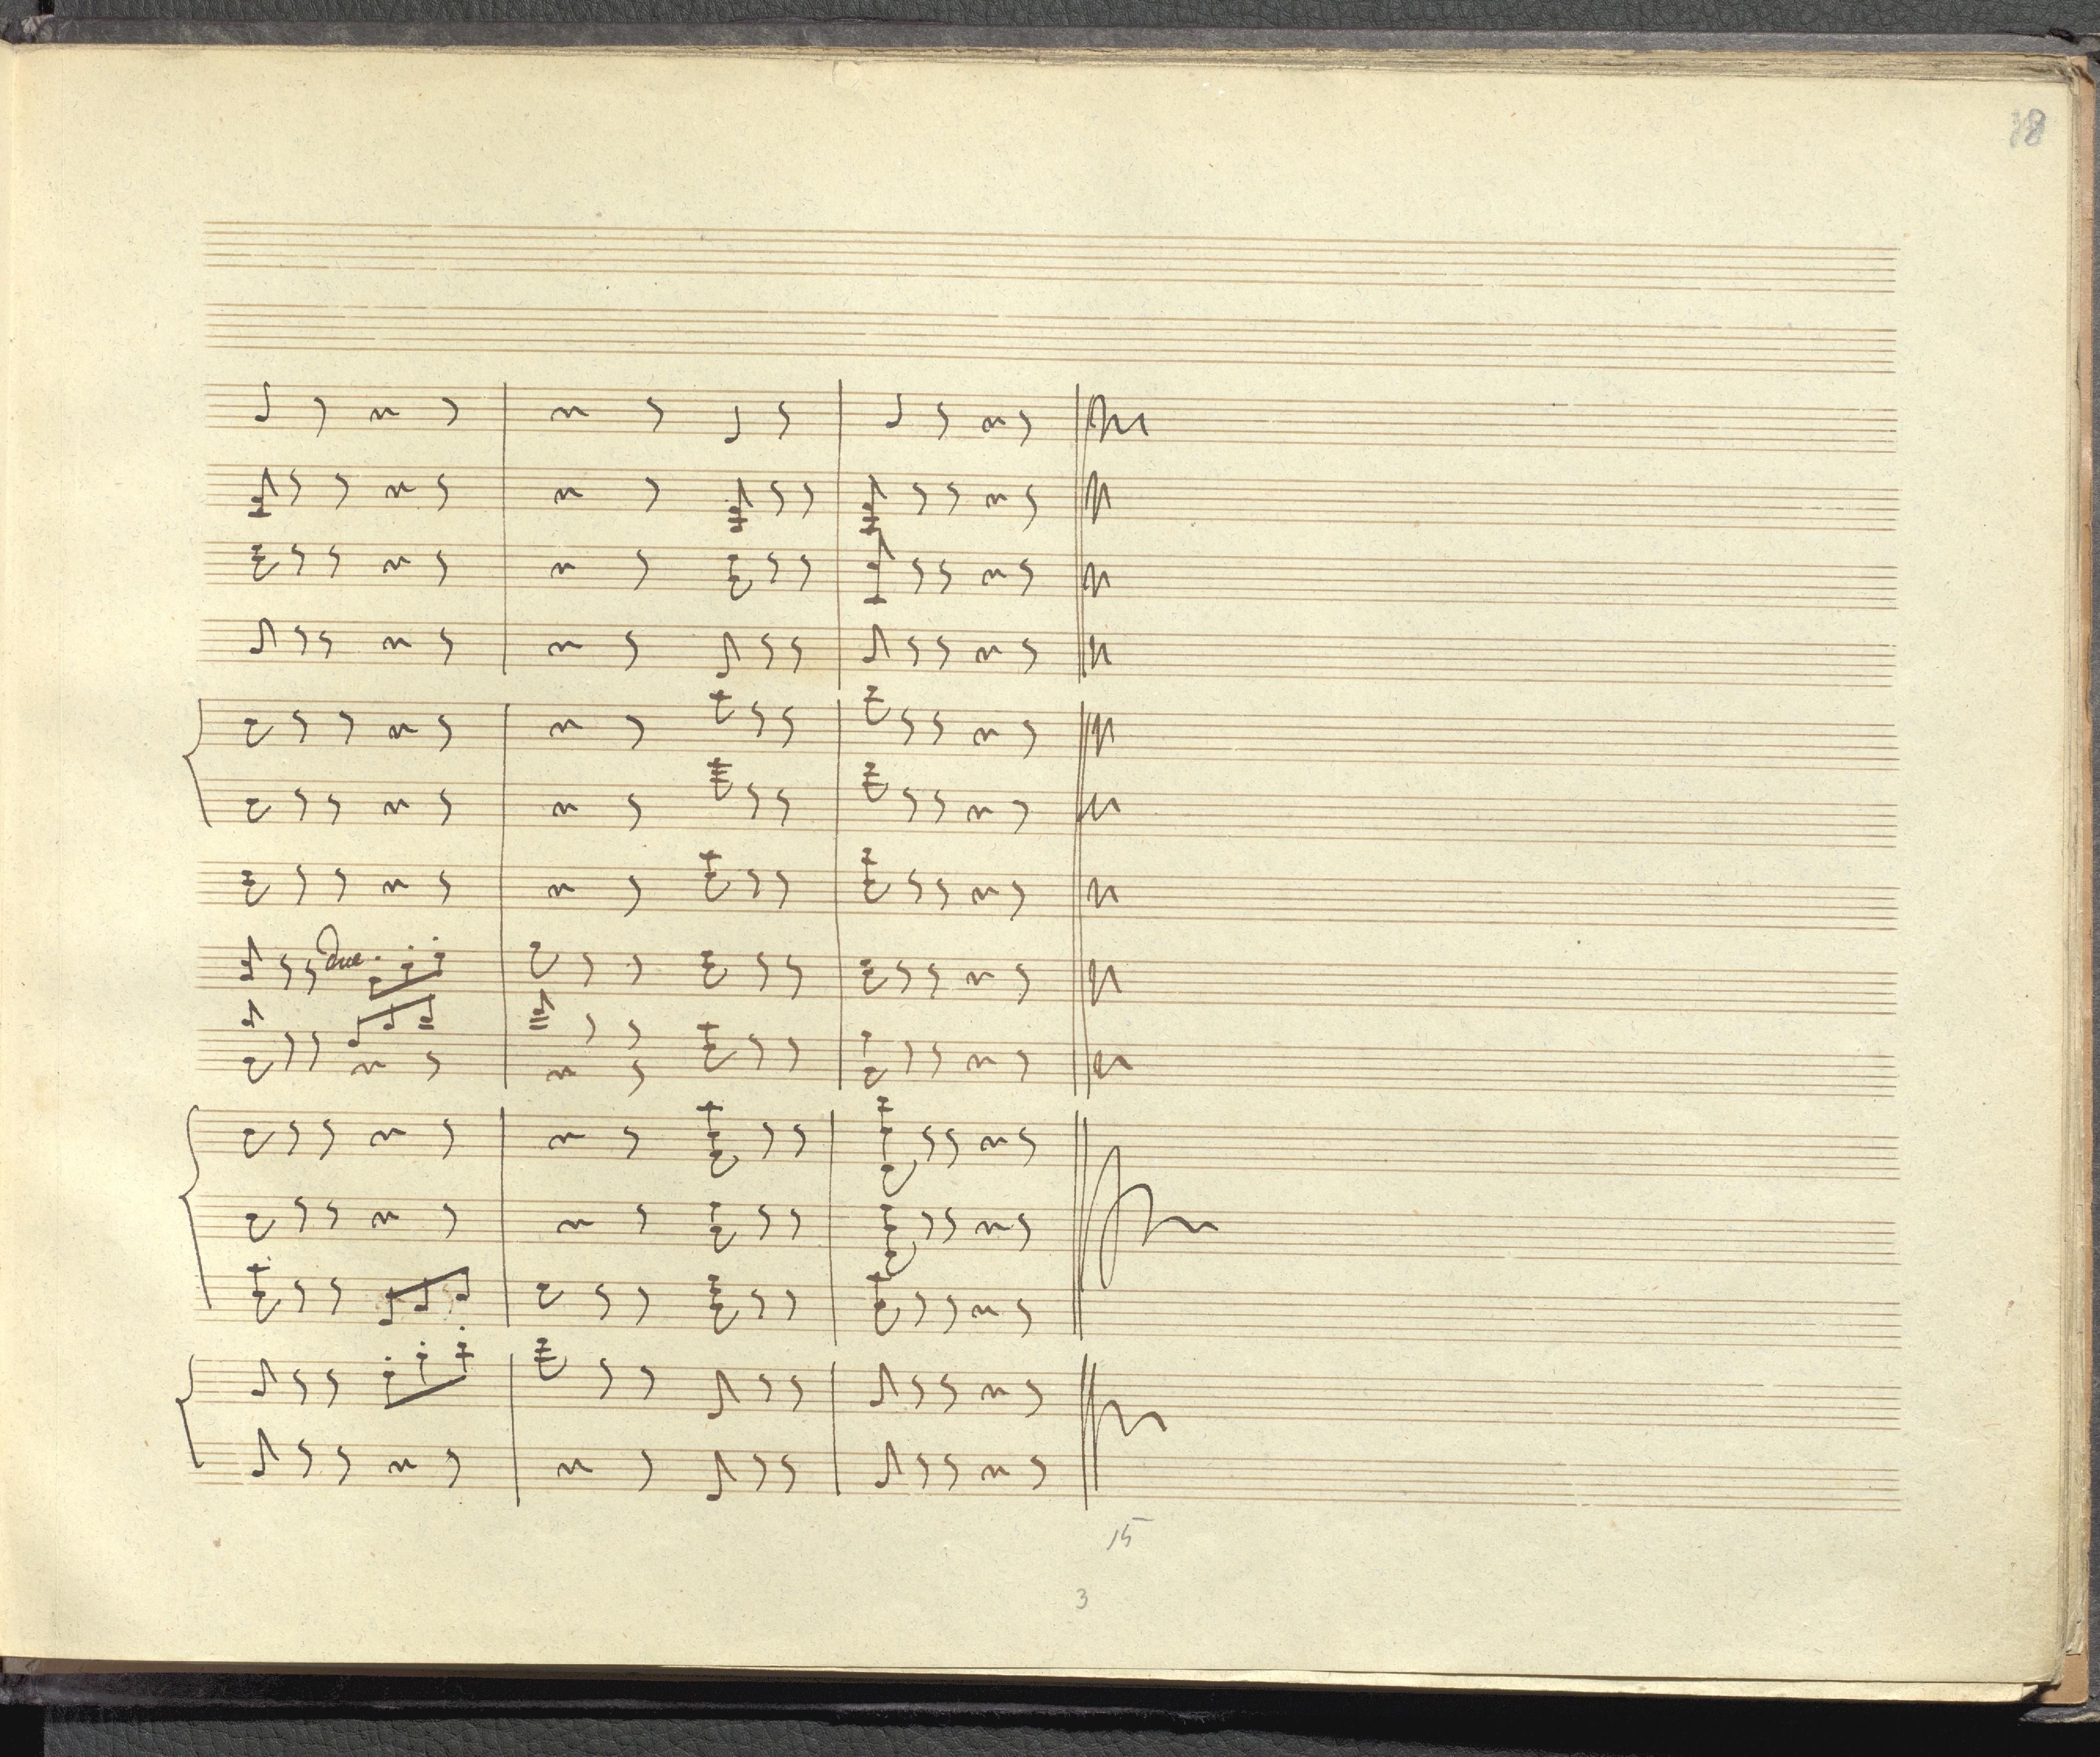 18
due
15
3